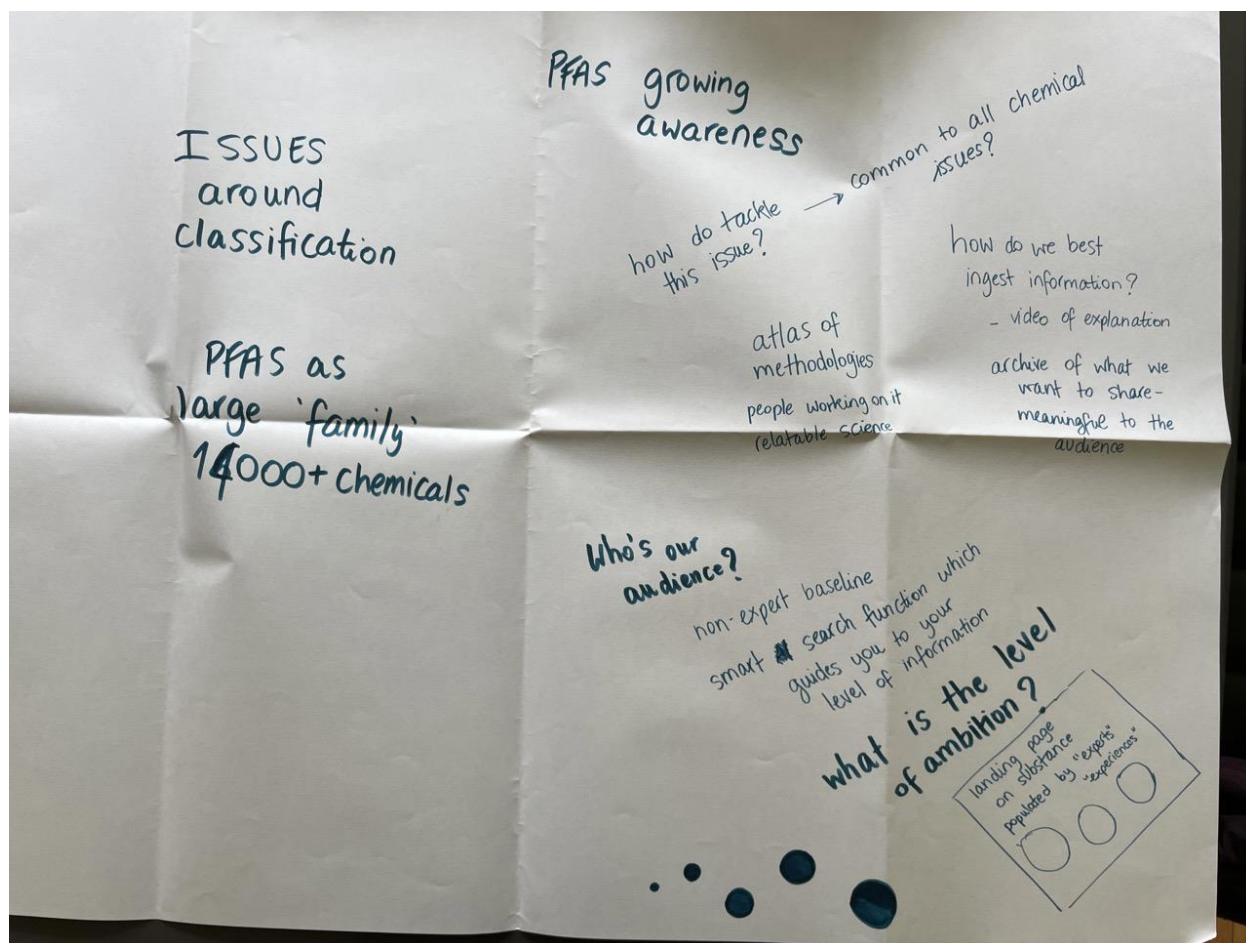 ISSUES
around
classification
PFAS as
large 'family'
14000+ chemicals
PFAS growing
awareness
how do tackle
this issue?
common to all chemical
issues?
how do we best
ingest information?
- video of explanation
archive of what we
want to share -
meaningful to the
audience
atlas of
methodologies
people working on it
relatable science
Who's our
audience?
non-expert baseline
smart search function which
guides you to your
level of information
what is the level
of ambition?
landing page
on substance
populated by "experts"
"experiences"